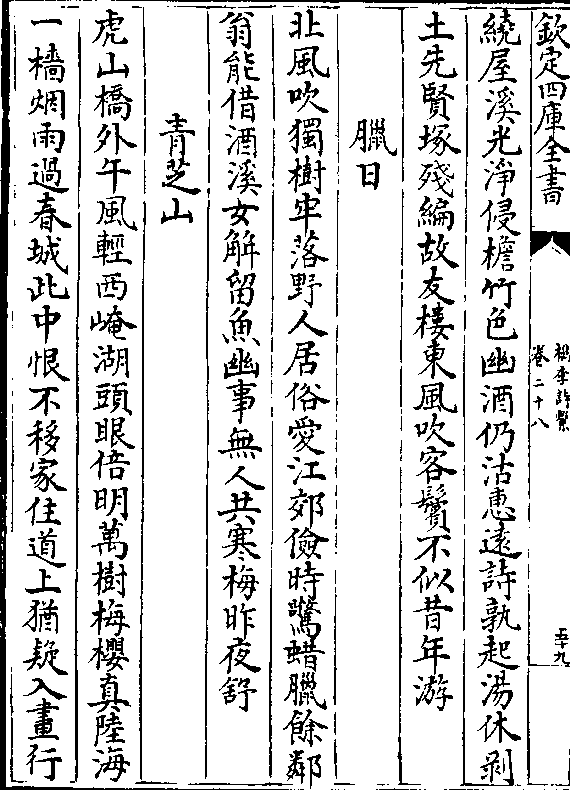 欽定四庫全書
檇李詩繫
卷二十八
五十九
繞屋溪光淨侵檐竹色幽酒仍沽惠遠詩孰起湯休剥
土先賢塚殘編故友樓東風吹客鬢不似昔年游
臘日
北風吹獨樹牢落野人居俗愛江郊儉時驚蜡臘餘鄰
翁能借酒溪女解留魚幽事無人共寒梅昨夜舒
青芝山
虎山橋外午風輕西崦湖頭眼倍明萬樹梅櫻真陸海
一樯烟雨過春城此中恨不移家住道上猶疑入畫行